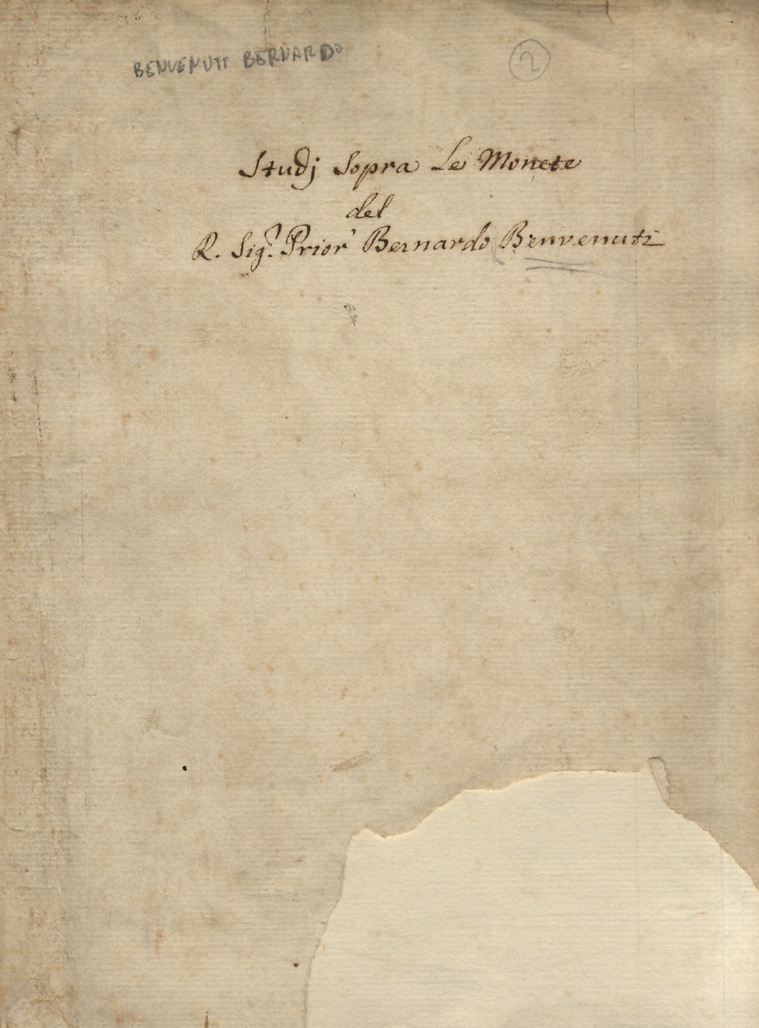 BENVENUTI BERNARDO
2
Studj Sopra Le Monete
del
R. Sig.r Prior Bernardo Benvenuti